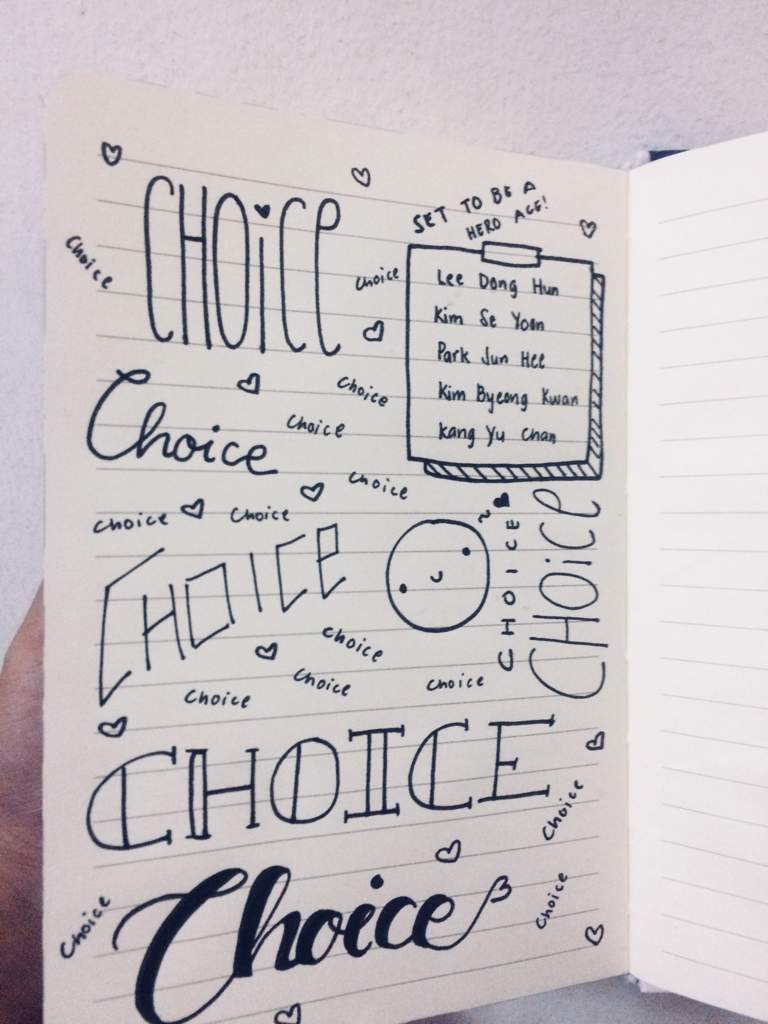 CHOiCe
SET TO BE A
HERO ACE!
Choice
choice
Lee Dong Hun
Kim Se Yoon
Park Jun Hee
Kim Byeong Kwan
Kang Yu Chan
Choice
Choice
Choice
Choice
Choice
Choice
CHOICE
CHOICE
CHOiCe
Choice
Choice
Choice
Choice
CHOICE
Choice
Choice
Choice
Choice